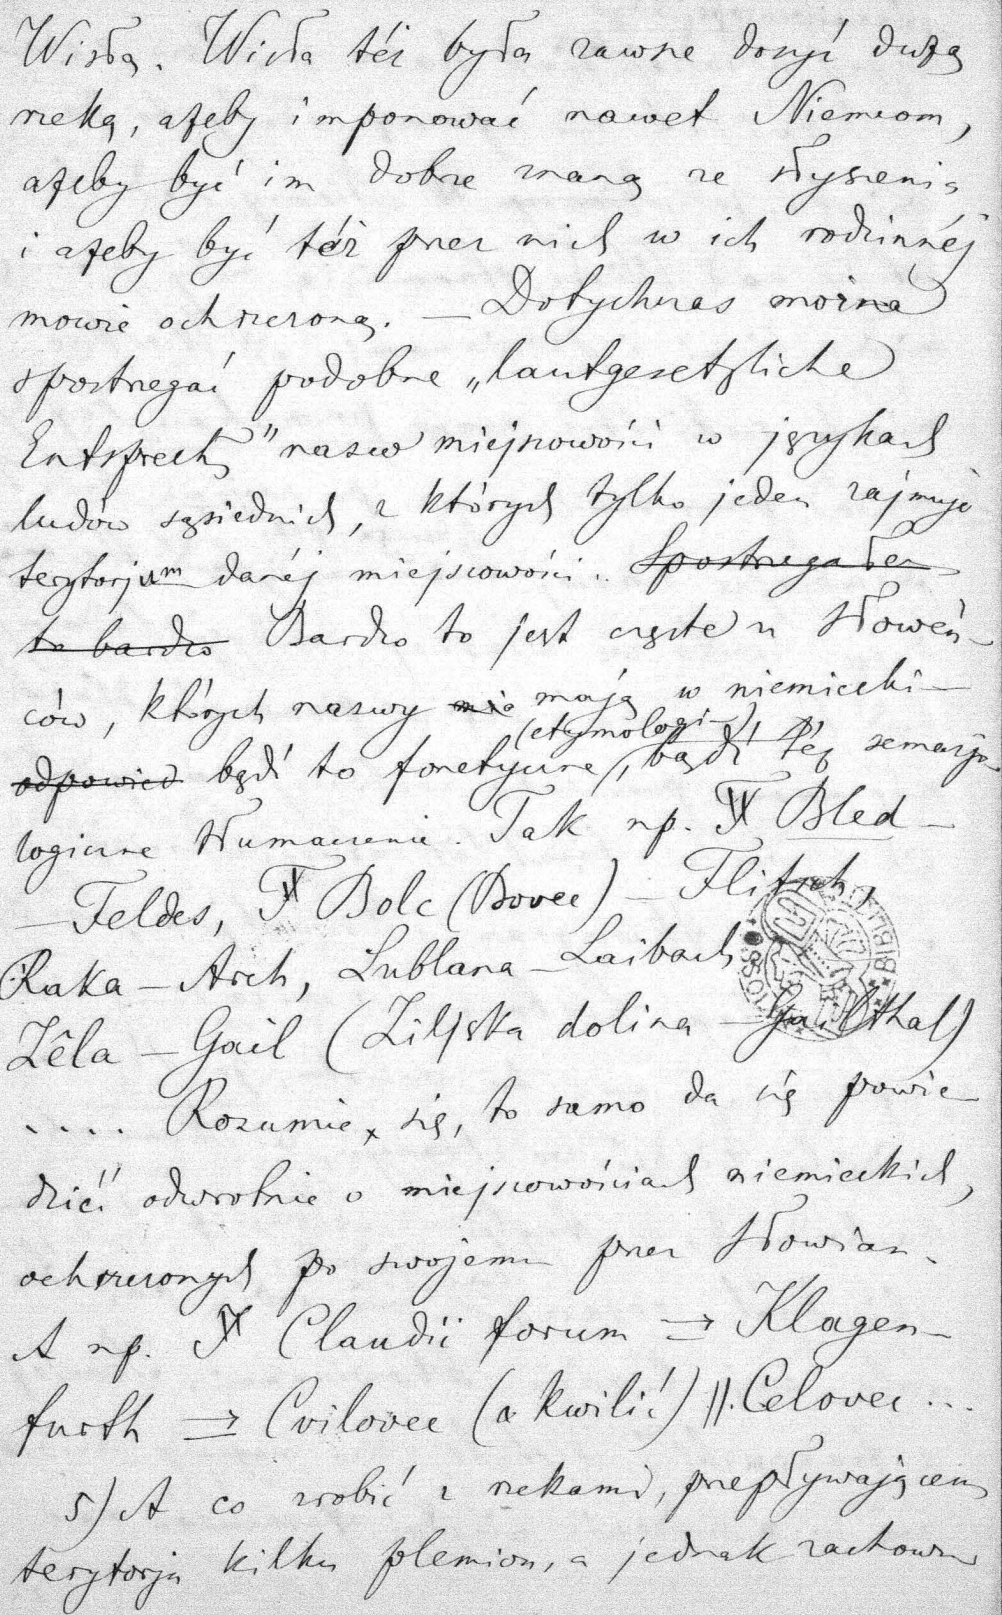 Wisłą. Wisła téż była zawsze dosyć dużą
rzeką, ażeby imponować nawet Niemcom,
ażeby być im dobrze znaną ze słyszenia
i ażeby być téż przez nich w ich rodzinnéj
mowie ochrzczoną. — Dotychczas można
spostrzegać podobne „lautgesetzliche
Entsprech." nazw miejscowości w językach
ludów sąsiednich, z których tylko jeden zajmuje
terytorjum danéj miejscowości. Spostrzegałem
to bardzo Bardzo to jest częste u Słoweń-
ców, których nazwy nie mają w niemiecki-
(etymologi-)
odpowied bądź to fonetyczne, bądź téż semazjo-
logiczne tłumaczenie. Tak np. Bled —
— Feldes, Bolc (Bovec) — Flitsch,
Raka — Arch, Lublana — Laibach,
Zêla — Gail (Ziljska dolina — Gailthal)
.... Rozumie się, to samo da się powie-
dzieć odwrotnie o miejscowościach niemieckich,
ochrzczonych po swojemu przez Słowian.
A np. Claudii forum → Klagen-
furth → Cvilovec (a kwilić) ||. Celovec ...
5) A co zrobić z rzekami, przepływającemi
terytorja kilku plemion, a jednak zachowu